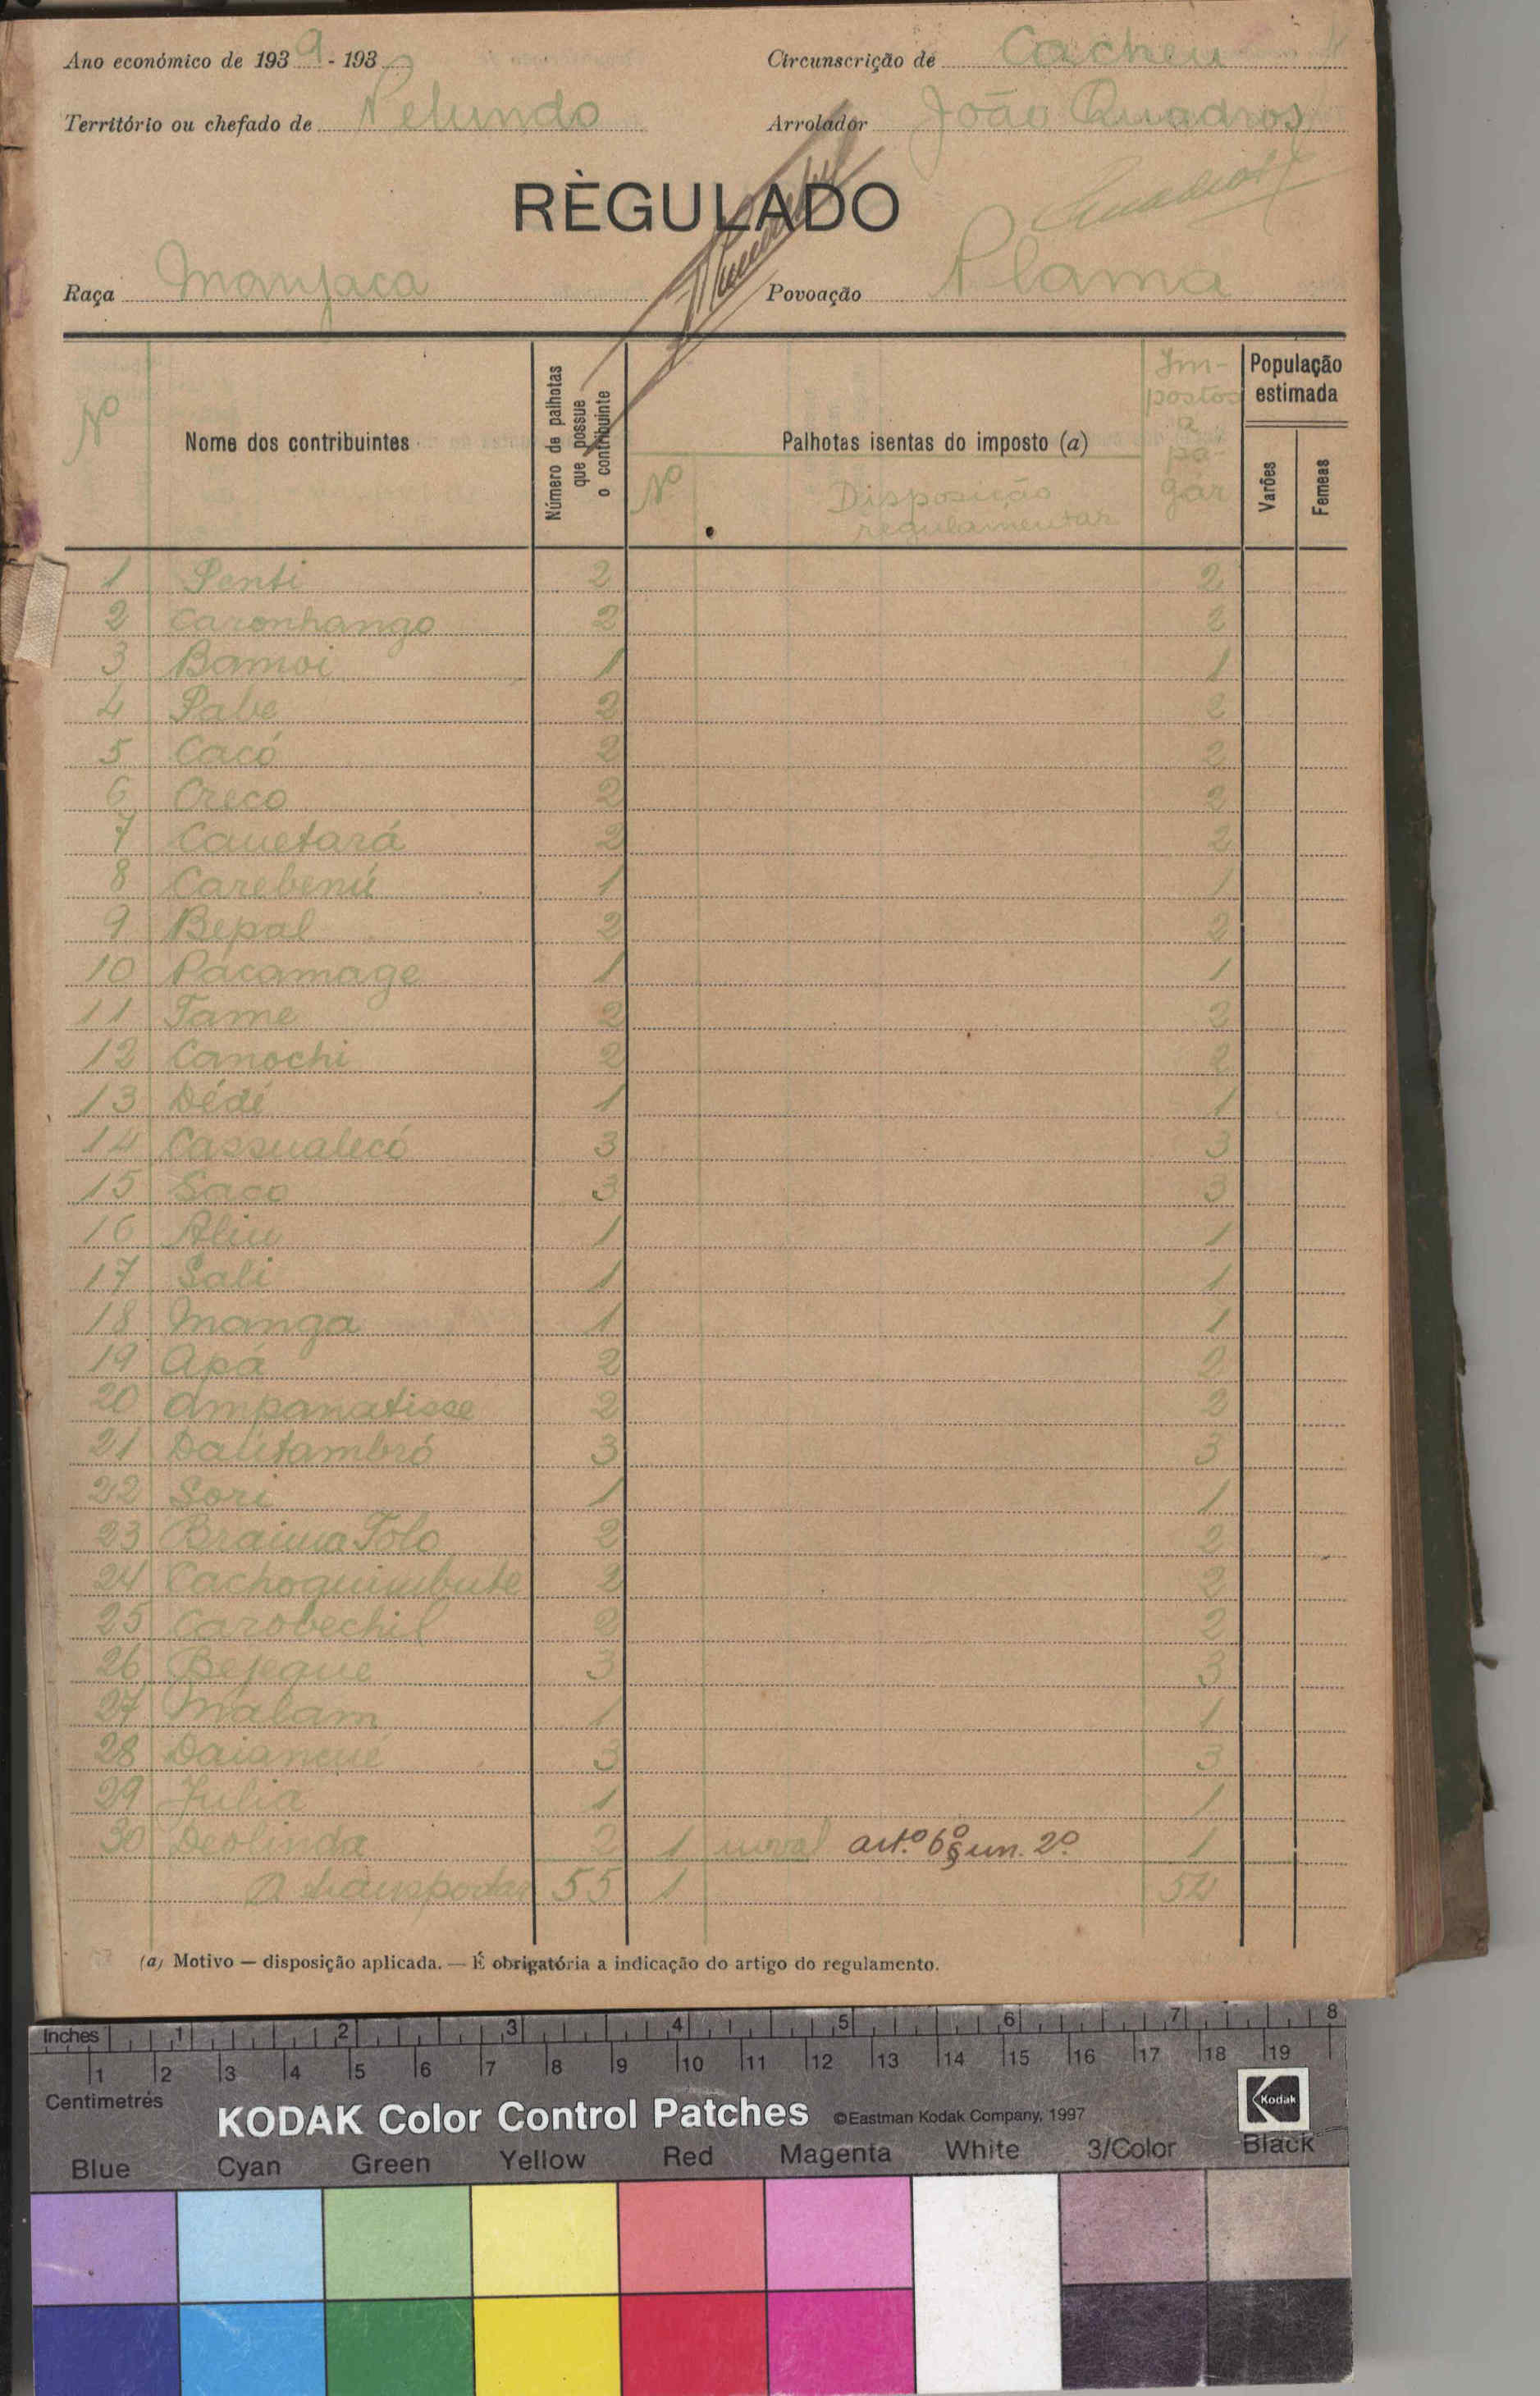 Ano económico de 1939 - 193
Circunscrição de Cacheu
Território ou chefado de Pelundo
Arrolador João Quadros
RÈGULADO
Raça Manjaca
Povoação Plama
Nº
Nome dos contribuintes
Número de palhotas que possue o contribuinte
Palhotas isentas do imposto (a)
Nº
Disposição
regulamentar
Im-
postos
a
pa-
gar
População
estimada
Varões
Femeas
1 Penti 2 2
2 Caronhango 2 2
3 Bamoi 1 1
4 Pabe 2 2
5 Cacó 2 2
6 Creco 2 2
7 Cauetará 2 2
8 Carebenú 1 1
9 Bepal 2 2
10 Pacamage 1 1
11 Tame 2 2
12 Canochi 2 2
13 Dédé 1 1
14 Cassualecó 3 3
15 Saco 3 3
16 Aliu 1 1
17 Sali 1 1
18 Manga 1 1
19 Apá 2 2
20 Ampanatisse 2 2
21 Dalitambró 3 3
22 Sori 1 1
23 Braima Tolo 2 2
24 Cachoquimbute 2 2
25 Carobechil 2 2
26 Bejeque 3 3
27 Malam 1 1
28 Daiancué 3 3
29 Julia 1 1
30 Deolinda 2 1 artº 6º § un. 2º 1
A transportar 55 1 54
(a) Motivo — disposição aplicada. — É obrigatória a indicação do artigo do regulamento.
Inches 1 2 3 4 5 6 7 8
1 2 3 4 5 6 7 8 9 10 11 12 13 14 15 16 17 18 19
Centimetres
KODAK Color Control Patches ©Eastman Kodak Company, 1997
Kodak
Blue Cyan Green Yellow Red Magenta White 3/Color Black